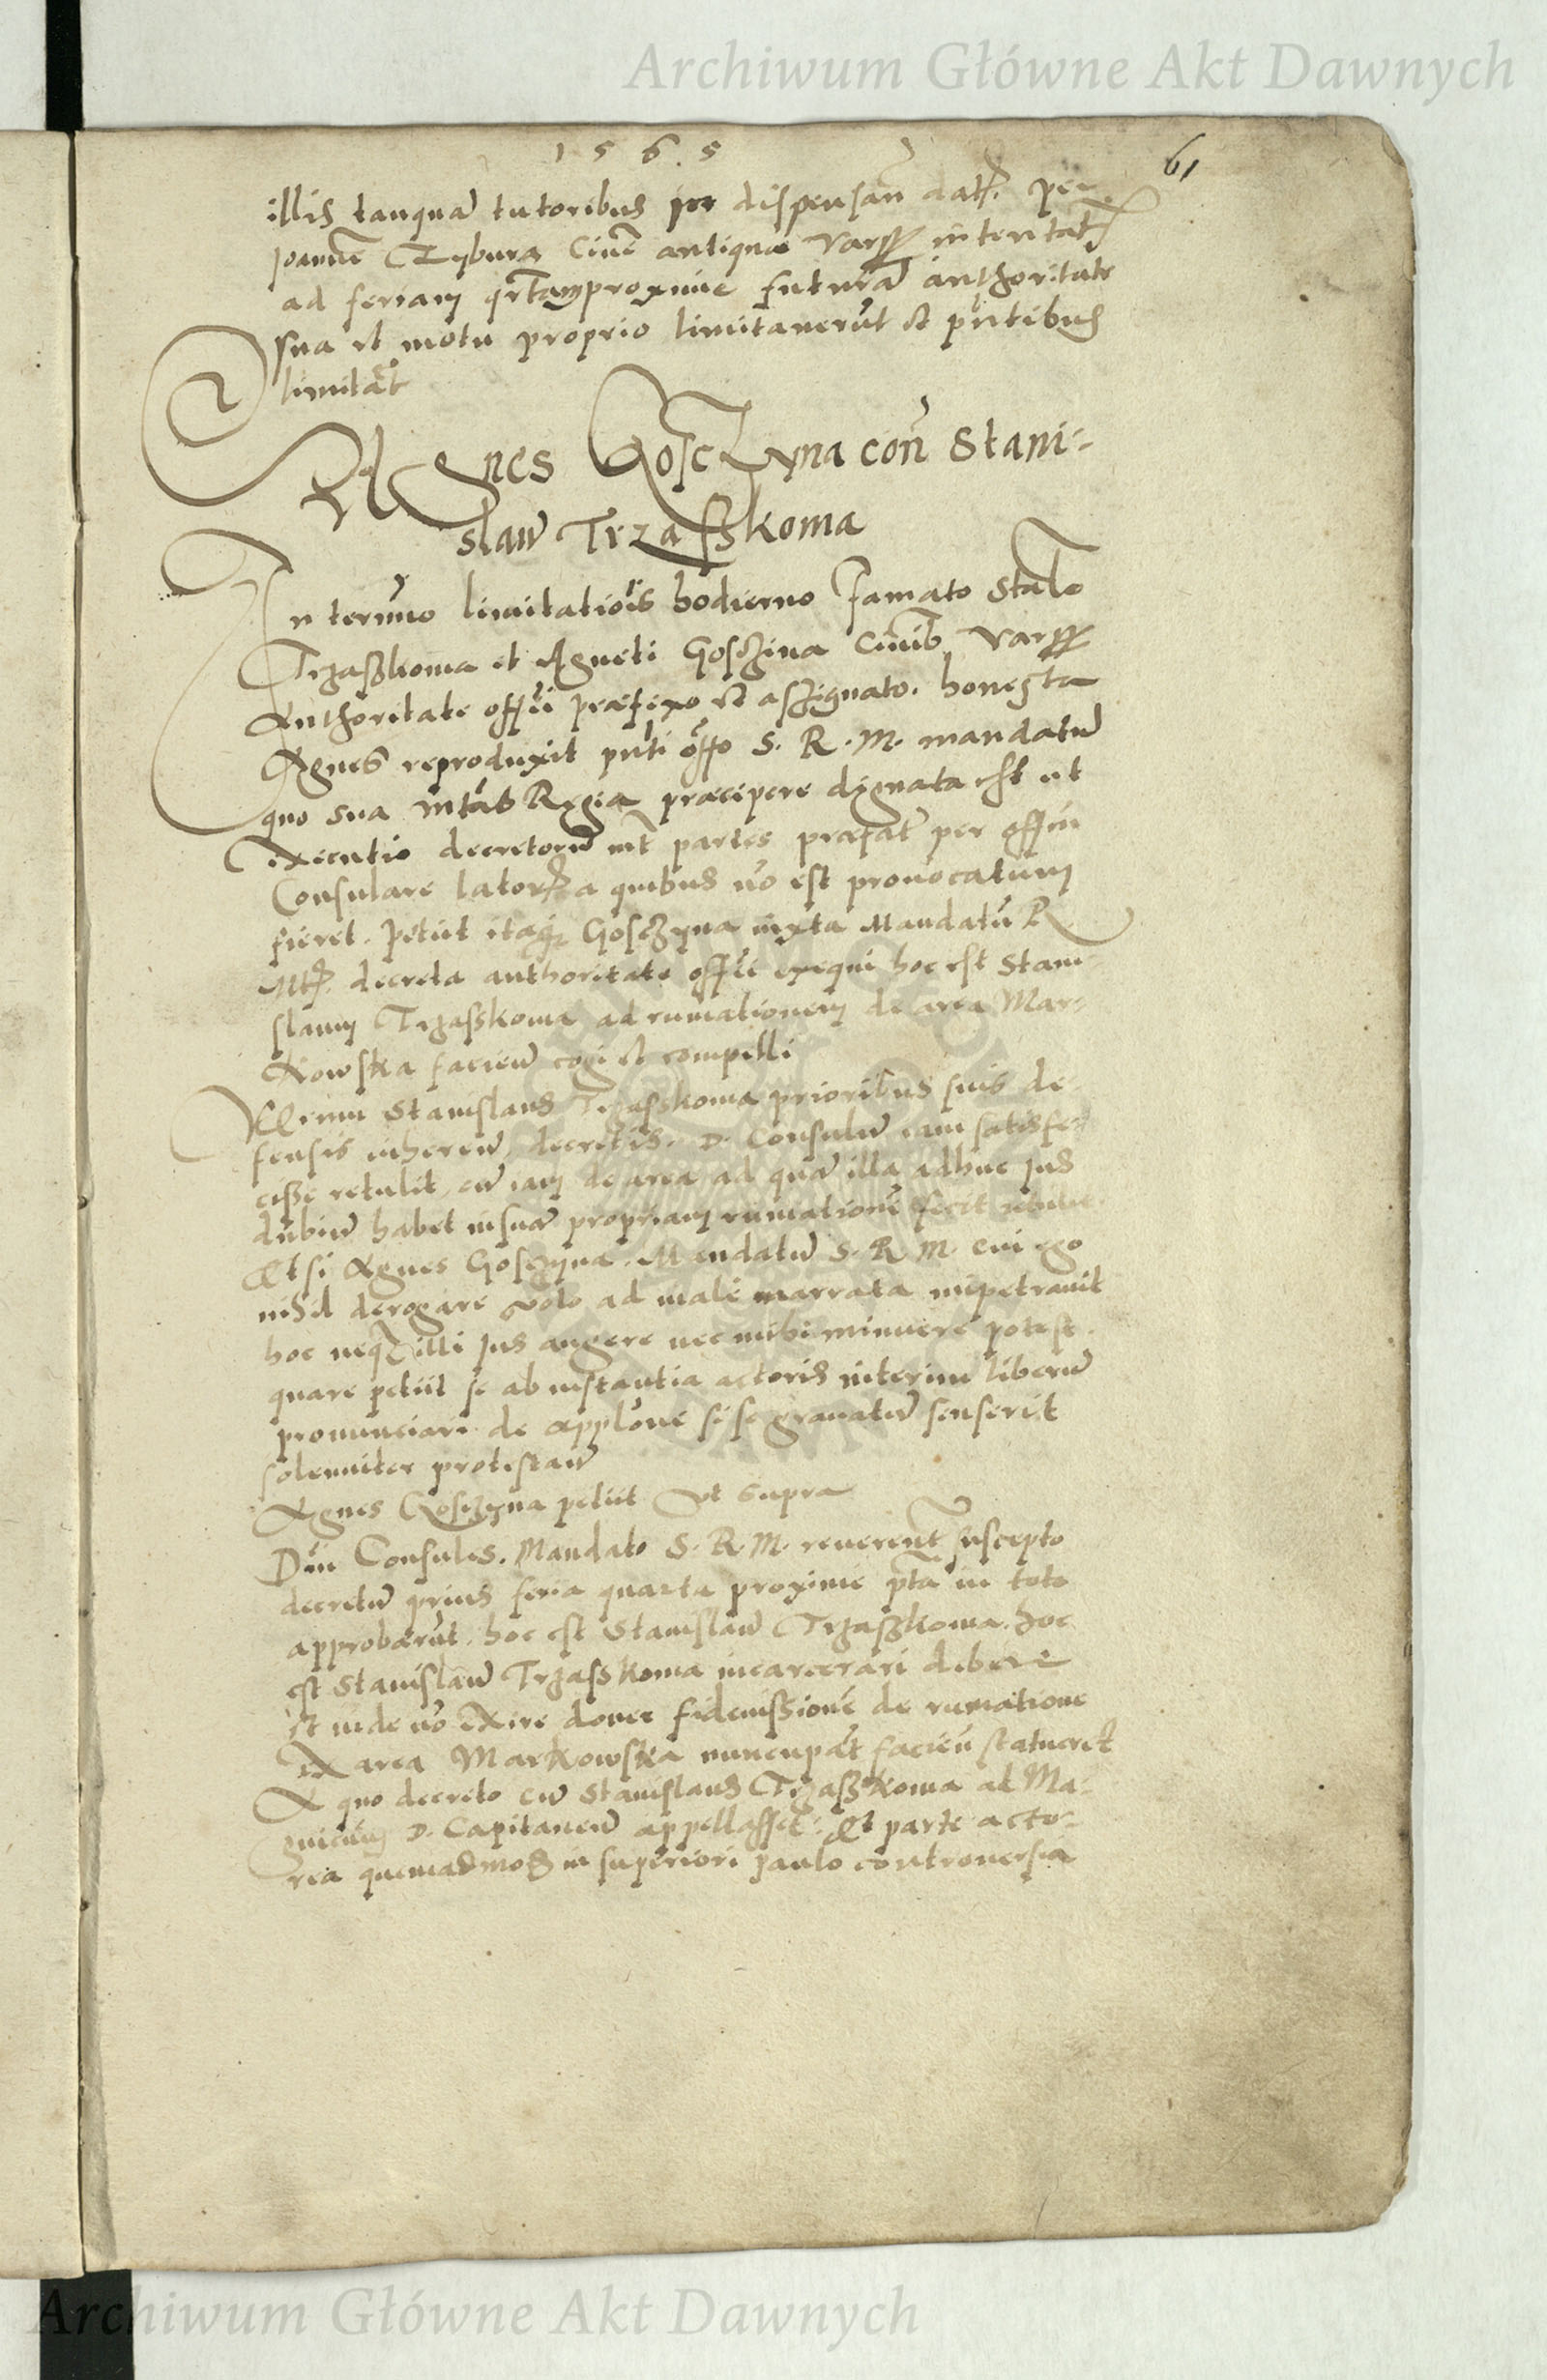 Archiwum Główne Akt Dawnych
1 5 6 . 5
61
illis tanquā tutoribus per dispensan dat. per
Joannē Tybura Civē antiquæ Vars intentat
ad feriam qrtam proxime futurā authoritate
sua et motu proprio limitaverūt et pntibus
limitāt
Agnes Gosczyna con̄ Stani-
slaū Trzaszkoma
In termīno limitatiōis hodierno famato Stalo
Trzaszkoma et Agneti Gosczina Civib Vars
Authoritate offīi præfixo et assignato. honesta
Agnes reproduxit pnti offo S. R. M. mandatū
quo sua Mtas Regia præcipere dignata est ut
Executio decretorū int partes præfat per offm
Consulare lator a quibus nō est provocatum
fieret. Petiit itaq Gosczyna iuxta Mandatū R
Mt. decreta authoritate offīi exequi hoc est Stani
slaum Trzaszkoma ad rumationem de area Mar-
kowska facien̄ cogi et compelli
Verum Stanislaus Trzaszkoma prioribus suis de-
fensis inheren̄ decretis. D. Consulū iam satisfe-
cisse retulit, cū iam de area ad quā illa adhuc Jus
dubiū habet in suā propriam rumationē fecit
Et si Agnes Gosczyna. Mandatū S. R. M. cui ego
nihil derogare volo ad male narrata impetravit
hoc neq illi Jus augere nec mihi minuere potest.
quare petiit se ab instantia actoris interim liberū
pronunciari de applōne si se gravatū senserit
solenniter protestan̄
Agnes Gosczyna petiit Vt supra
Dni Consules. Mandato S. R. M. reverent suscepto
decretū prius feria quarta proxime pta in toto
approbarūt. hoc est Stanislaū Trzaszkoma. hoc
est Stanislaū Trzaszkoma incarcerari debere
Et inde nō exire donec fideiussionē de rumatione
Ex area Markowska nuncupāt facien̄ statuerit
A quo decreto cū Stanislaus Trzaszkoma ad Ma-
gnicūm D. Capitaneū appellasset. Et parte acto-
rea quemadmod in superiori paulo controversia
Archiwum Główne Akt Dawnych